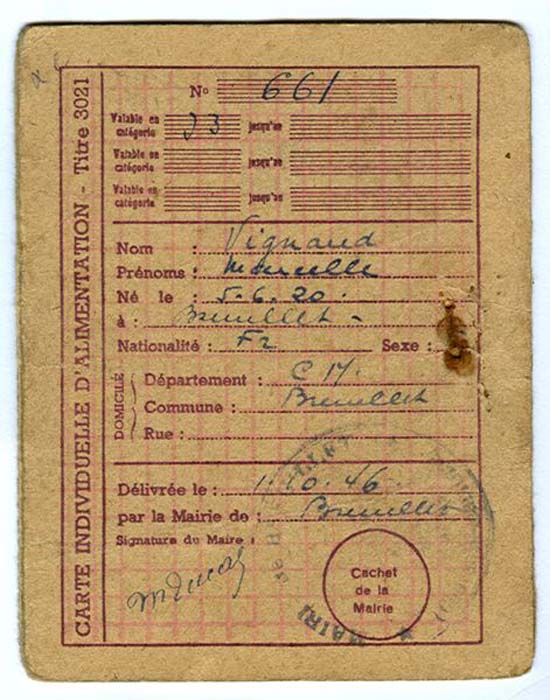 CARTE INDIVIDUELLE D'ALIMENTATION - Titre 3021
No 661
Valable en catégorie J3 jusqu'au
Valable en catégorie jusqu'au
Valable en catégorie jusqu'au
Nom : Vignaud
Prénoms : Marcelle
Né le : 5.6.20.
à : Breuillet -
Nationalité : Fr Sexe :
DOMICILE
Département : C 17.
Commune : Breuillet
Rue :
Délivrée le : 1.10.46
par la Mairie de : Breuillet
Signature du Maire :
Cachet
de la
Mairie
MAIRI